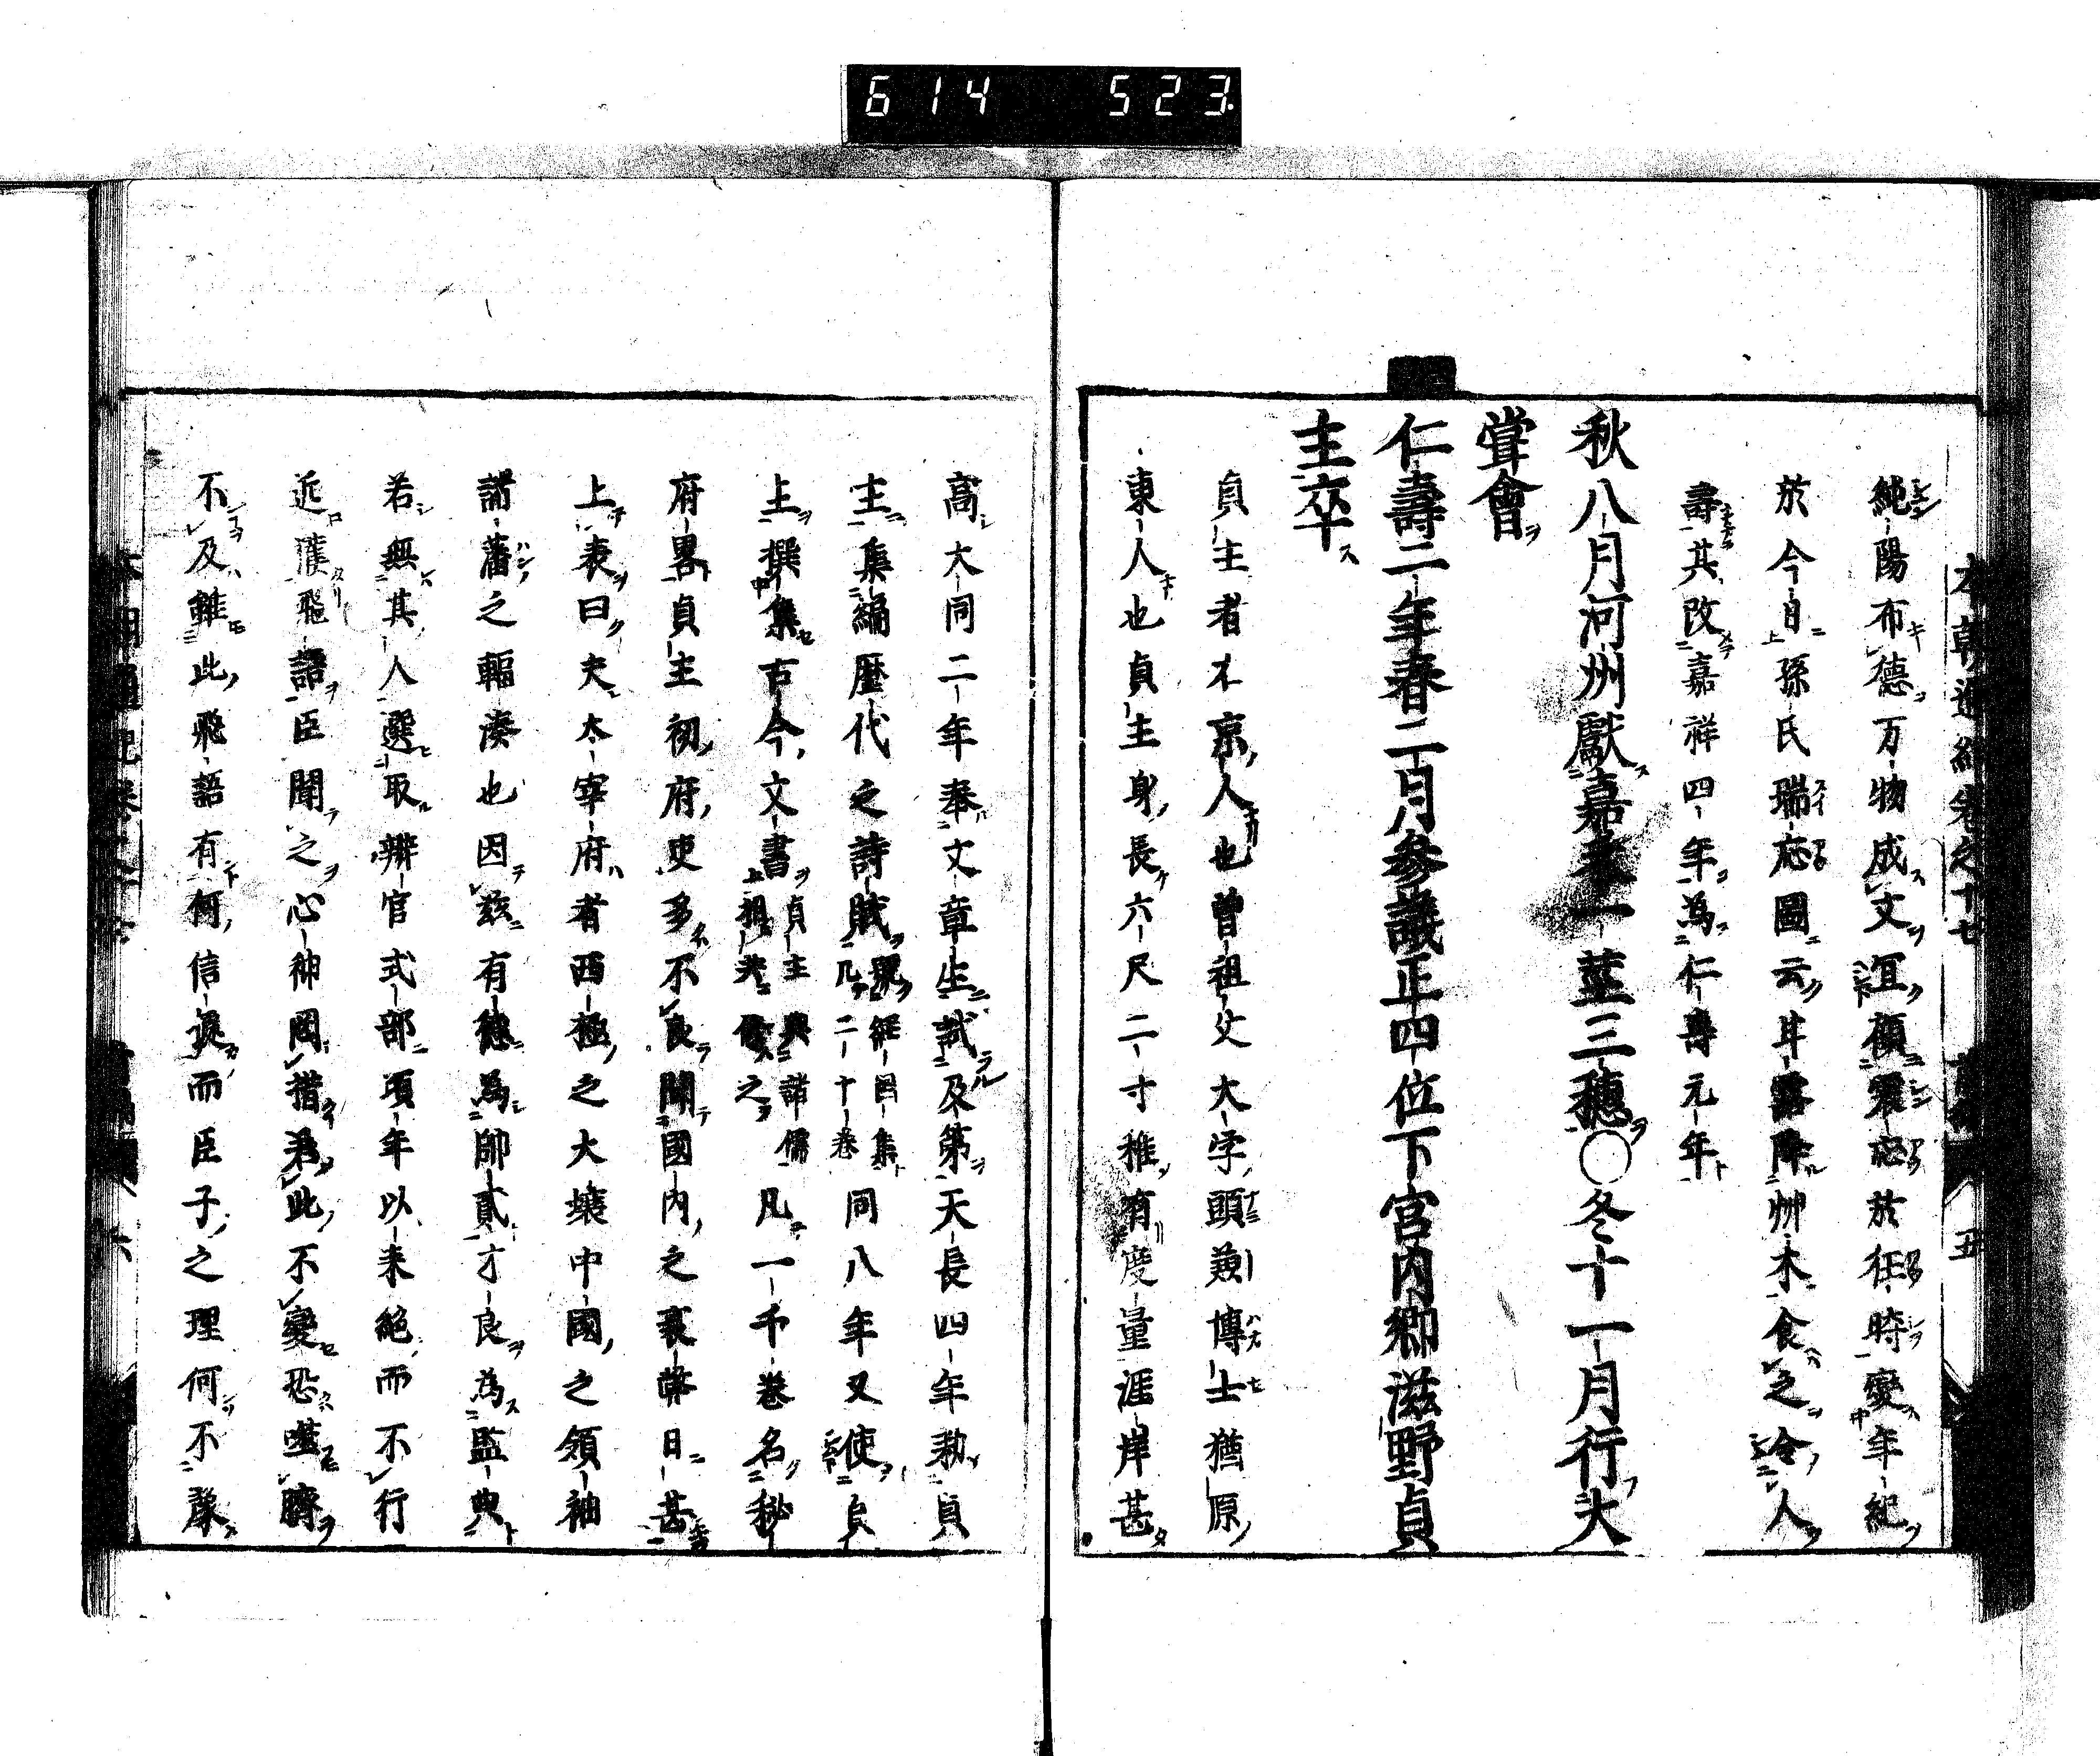 614 523
本朝通紀卷之十七 五
純陽布德万物成文冝顧瑞應於徃時變年紀
於今自孫氏瑞應圖云甘露降艸木食之令人
壽其改嘉祥四年為仁壽元年
秋八月河州獻嘉禾一莖三穗○冬十一月行大
甞會
仁壽二年春二月参議正四位下宮内卿滋野貞
主卒
貞主者右京人也曽祖父大字頭兼博士猶原
東人也貞主身長六尺二寸稚有度量涯岸甚
高大同二年奉文章生試及第天長四年勅貞
主集編歴代之詩賦號經国集凡二十卷同八年又使貞
主撰集古今文書貞主與諸儒相共修之凡一千卷名秘
府畧貞主初府吏多不良聞國内之衰弊日甚
上表曰夫太宰府者西極之大壤中國之領袖
諸藩之輻湊也因茲有德為帥貳才良為監典
若無其人選取辨官式部項年以来絶而不行
近濩飛語臣聞之心神罔措若此不變恐噬臍
不及雖此飛語有何信還而臣子之理何不奏